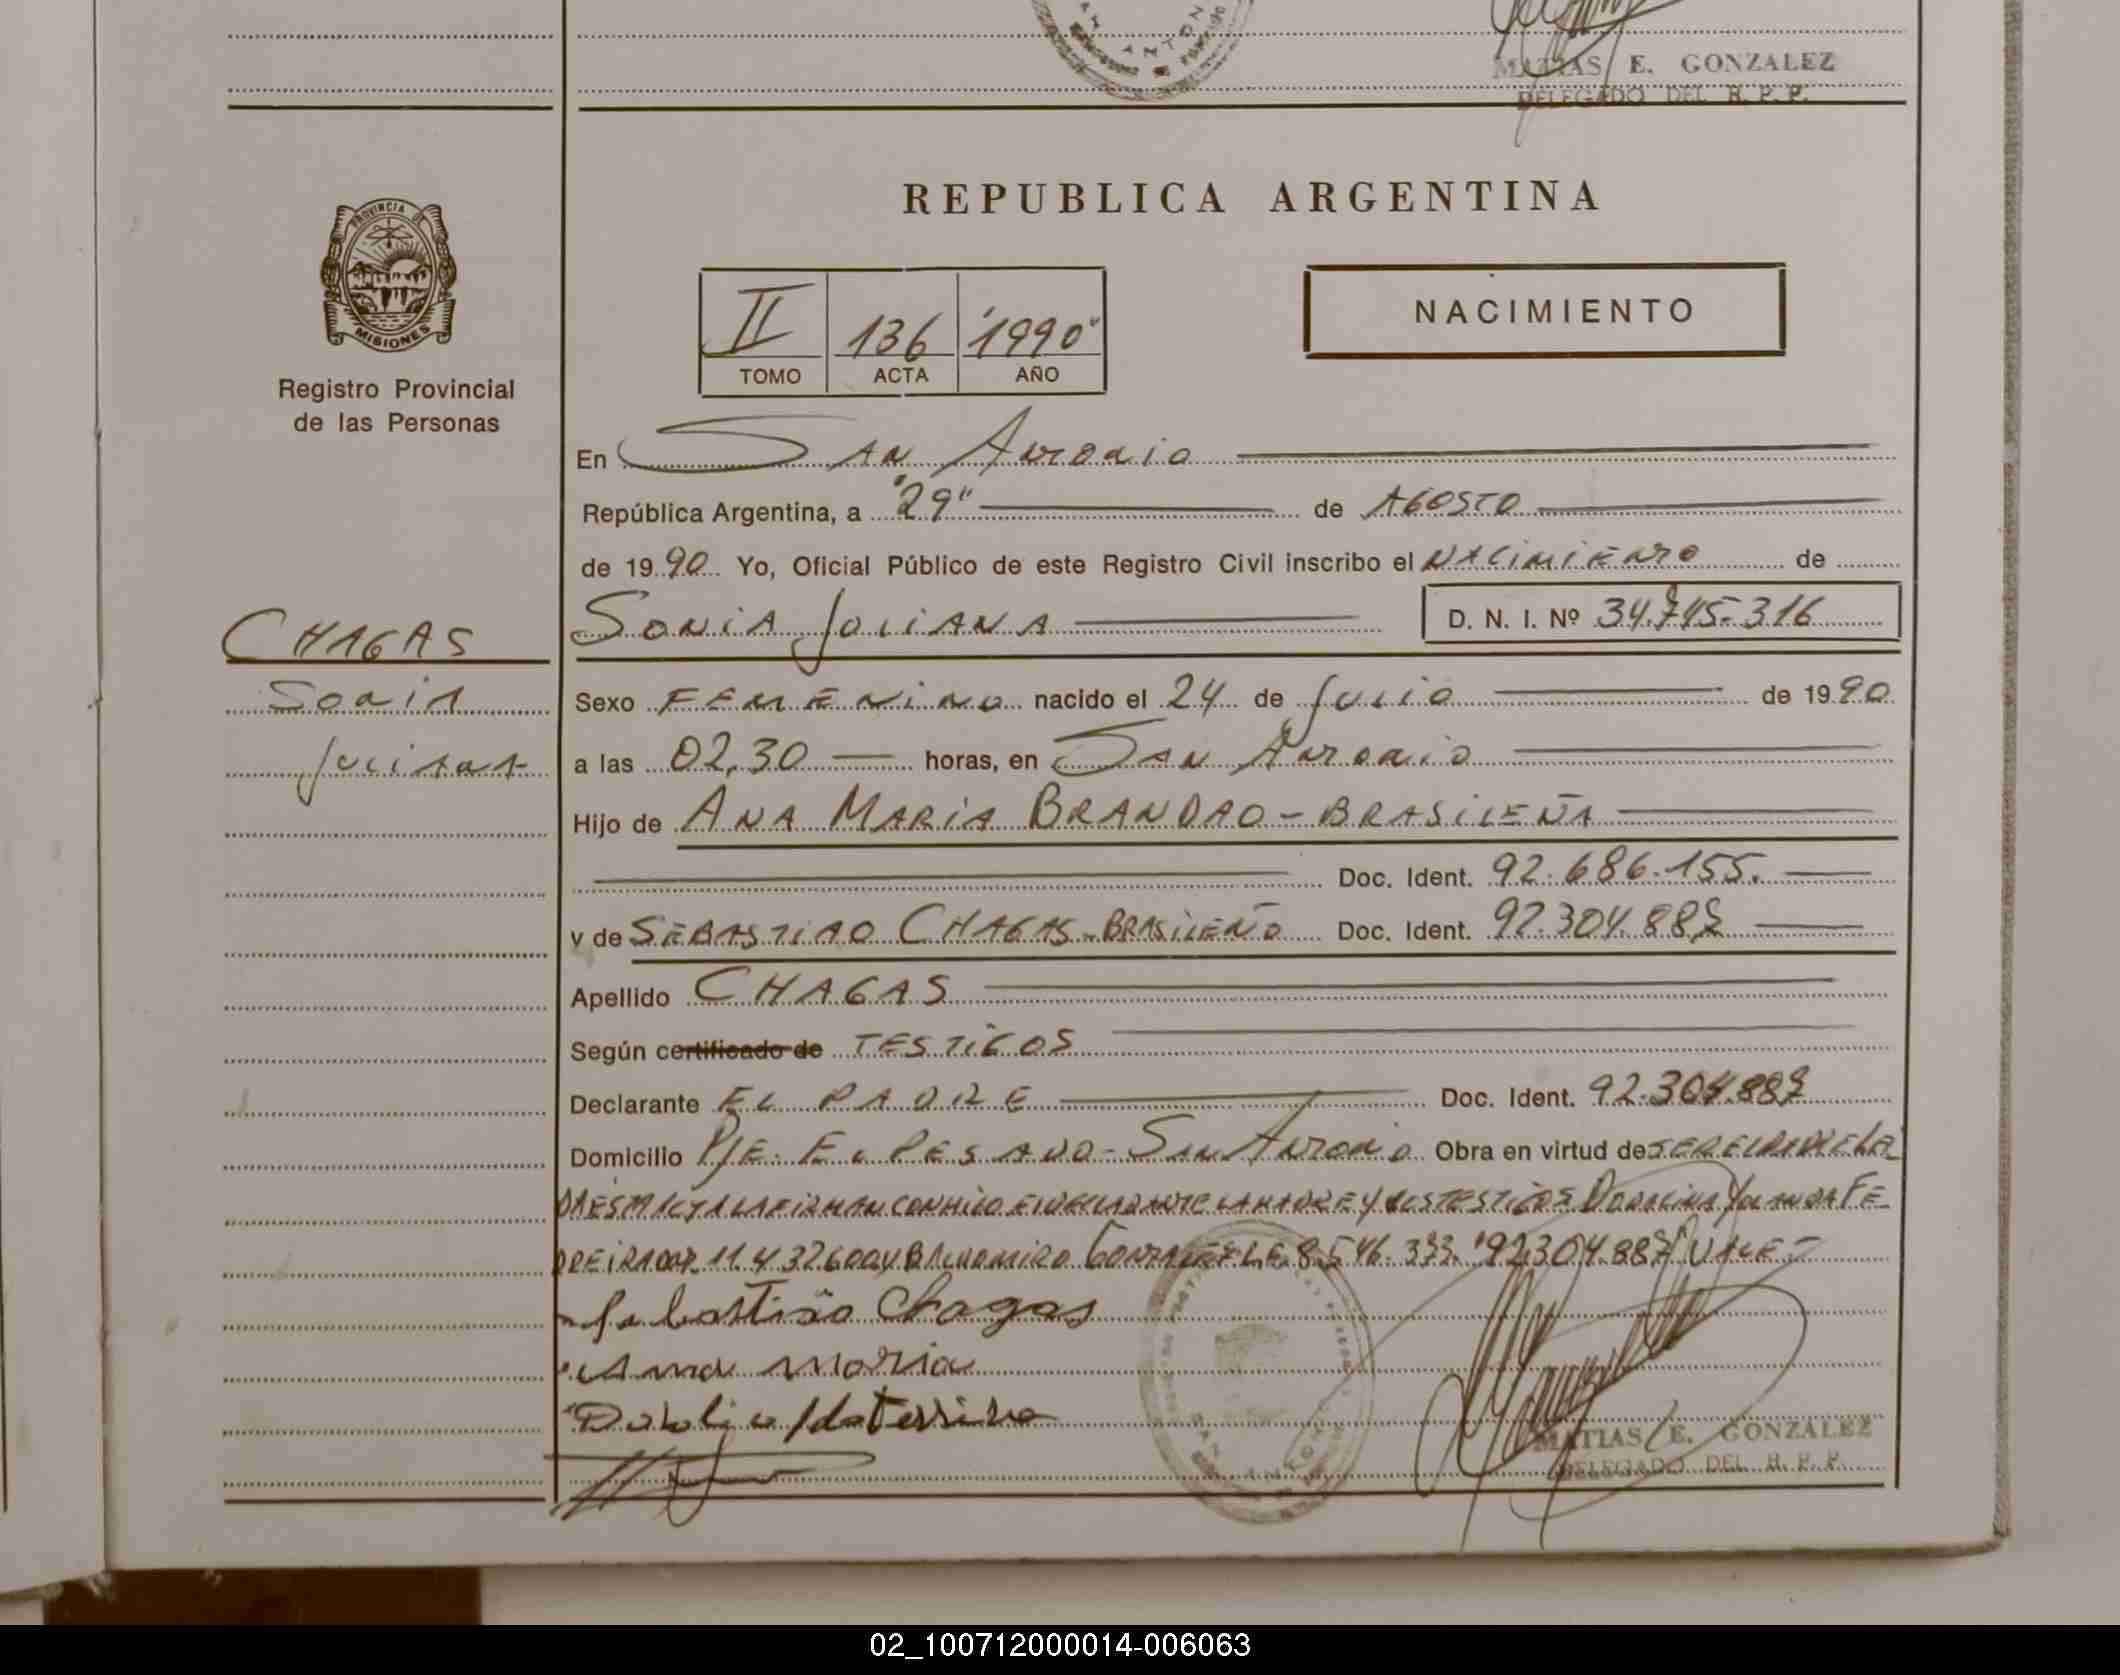 MATIAS E. GONZALEZ
DELEGADO DEL R. P. P.
PROVINCIA DE
MISIONES
Registro Provincial
de las Personas
REPUBLICA ARGENTINA
II 136 "1990"
TOMO ACTA AÑO
NACIMIENTO
En San Antonio
República Argentina, a "29" de AGOSTO
de 1990 Yo, Oficial Público de este Registro Civil inscribo el NACIMIENTO de
CHAGAS
Sonia
Juliana
SONIA JULIANA D. N. I. Nº 34.745.316
Sexo FEMENINO nacido el 24 de Julio de 1990
a las 02,30 horas, en San Antonio
Hijo de ANA MARIA BRANDAO - BRASILEÑA
Doc. Ident. 92.686.155.
y de SEBASTIAO CHAGAS - BRASILEÑO Doc. Ident. 92.304.887
Apellido CHAGAS
Según certificado de TESTIGOS
Declarante EL PADRE Doc. Ident. 92.304.887
Domicilio PJE. EL PESADO - San Antonio Obra en virtud de
DA ESTA ACTA LA FIRMAN CONMIGO EL DECLARANTE LA MADRE Y LOS TESTIGOS YOLANDA FE
GONZALEZ L.E 8.546.373. "92.304.887" VALE -
Sebastião Chagas
Ana maria
MATIAS E. GONZALEZ
DELEGADO DEL R. P. P.
02_100712000014-006063